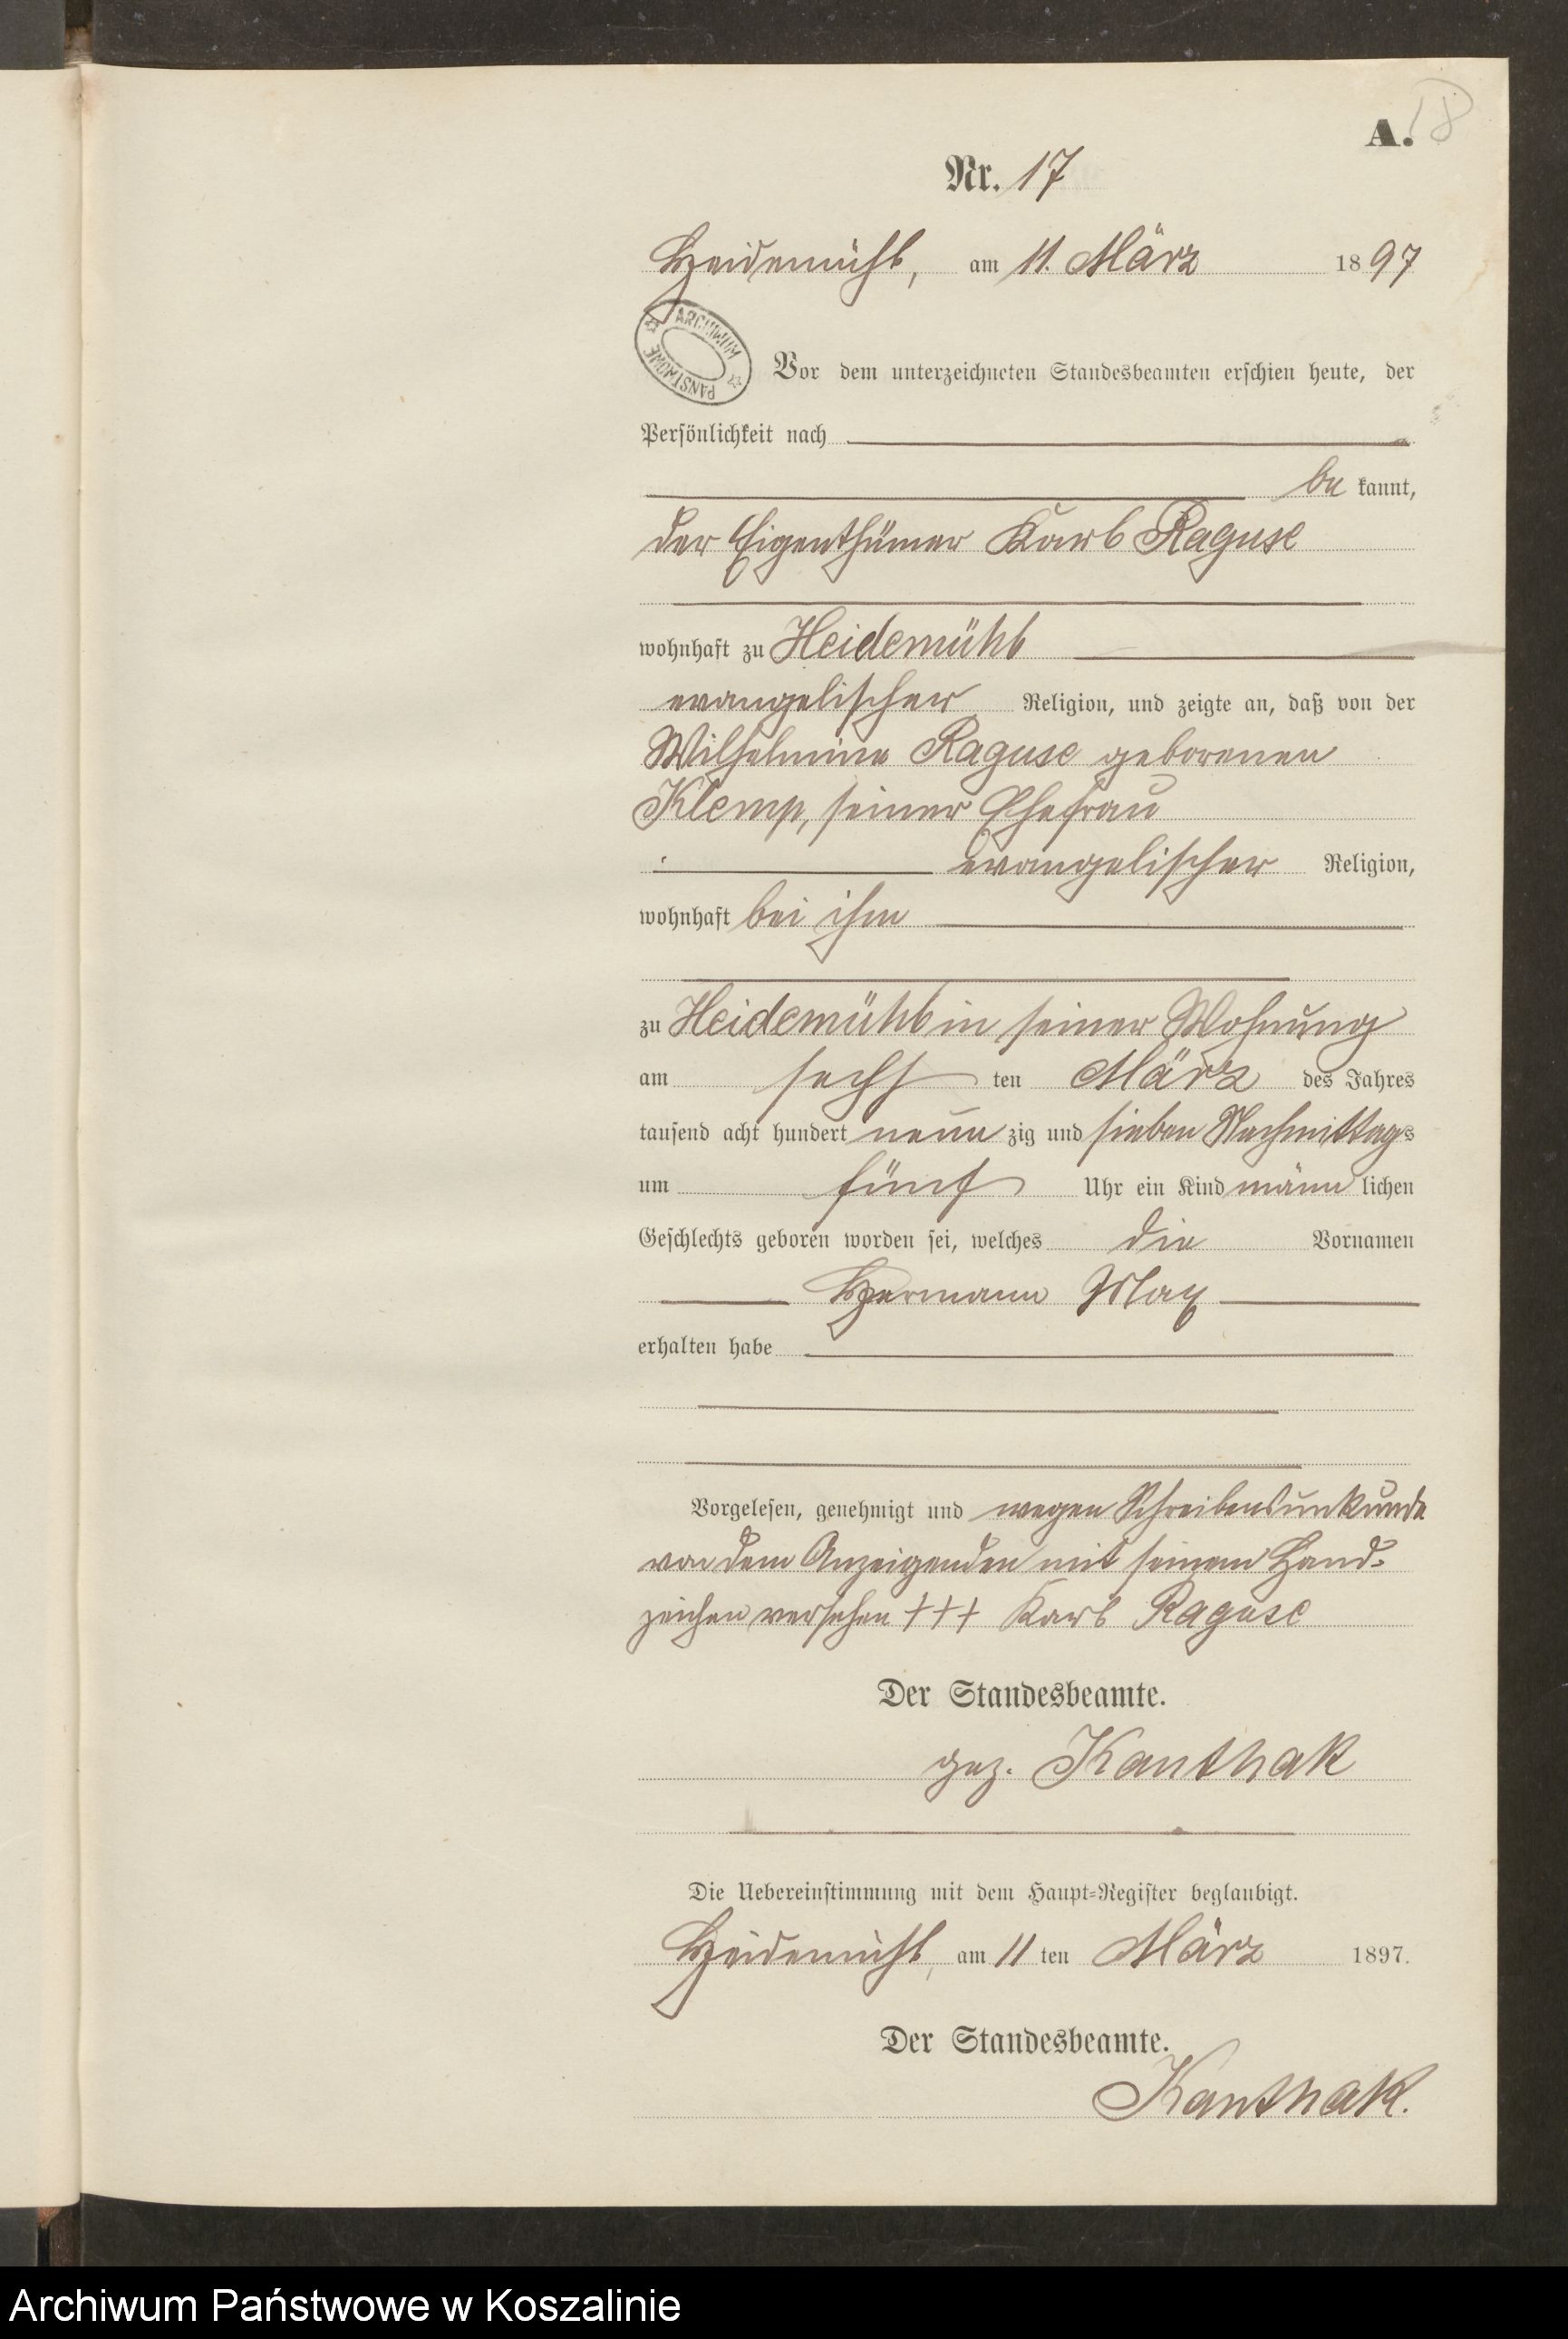 A. 18
Nr. 17
Heidemühl, am 11. März 1897
ARCHIWUM PAŃSTWOWE
Vor dem unterzeichneten Standesbeamten erschien heute, der
Persönlichkeit nach
be kannt,
der Eigenthümer Karl Raguse
wohnhaft zu Heidemühl
evangelischer Religion, und zeigte an, daß von der
Wilhelmine Raguse geborenen
Klemp, seiner Ehefrau
evangelischer Religion,
wohnhaft bei ihm
zu Heidemühl in seiner Wohnung
am sechs ten März des Jahres
tausend acht hundert neun zig und sieben Nachmittags
um fünf Uhr ein Kind männ lichen
Geschlechts geboren worden sei, welches die Vornamen
Hermann Max
erhalten habe
Vorgelesen, genehmigt und wegen Schreibensunkunde
von dem Anzeigenden mit seinem Hand-
zeichen versehen +++ Karl Raguse
Der Standesbeamte.
gez. Kanthak
Die Uebereinstimmung mit dem Haupt-Register beglaubigt.
Heidemühl, am 11 ten März 1897.
Der Standesbeamte.
Kanthak.
Archiwum Państwowe w Koszalinie